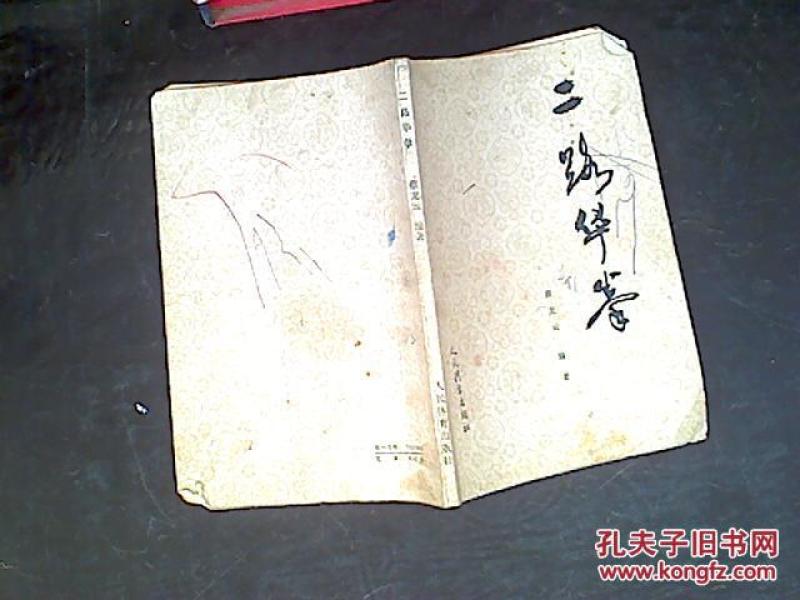 二路华拳
蔡龙云 编著
人民体育出版社
二路华拳
蔡龙云 编著
人民体育出版社
孔夫子旧书网
www.kongfz.com